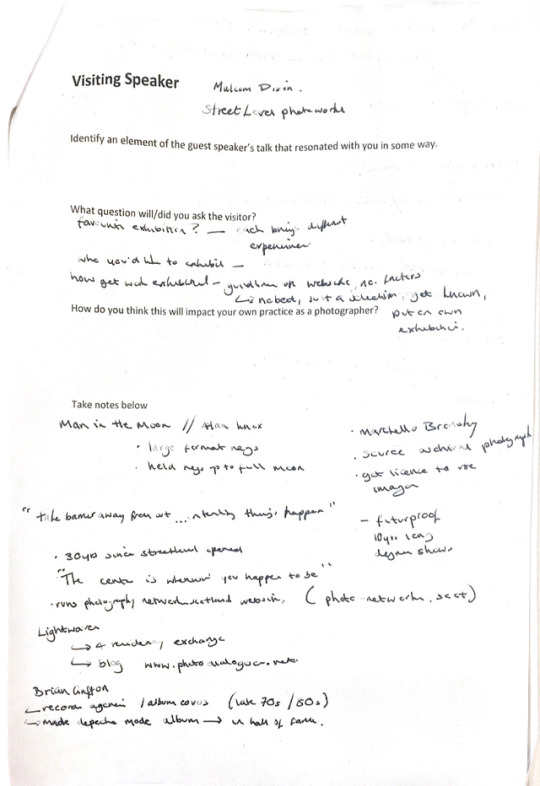 Visiting Speaker
Malcom Dixin.
Street Level photoworks
Identify an element of the guest speaker's talk that resonated with you in some way.
What question will/did you ask the visitor?
favourite exhibition? — each brings different
experiences
who you'd like to exhibit —
how get work exhibited – guidelines on website, no. factors
get known,
How do you think this will impact your own practice as a photographer?
put on own
exhibition.
Take notes below
Man in the Moon // Alan Knox
· large format negs
· held negs up to full moon
· source archival photograph
· get licence to use
images
"take barrier away from art ... things happen"
– futurproof
10yrs long
degree shows
· 30yo since streetlevel opened
"The centre is wherever you happen to be"
· runs photography network scotland website, (photo-networks.scot)
Lightwaves
↳ residency exchange
↳ blog
Brian Griffin
↳ record agencies / album covers (late 70s / 80s)
↳ made depeche mode album → in hall of fame.